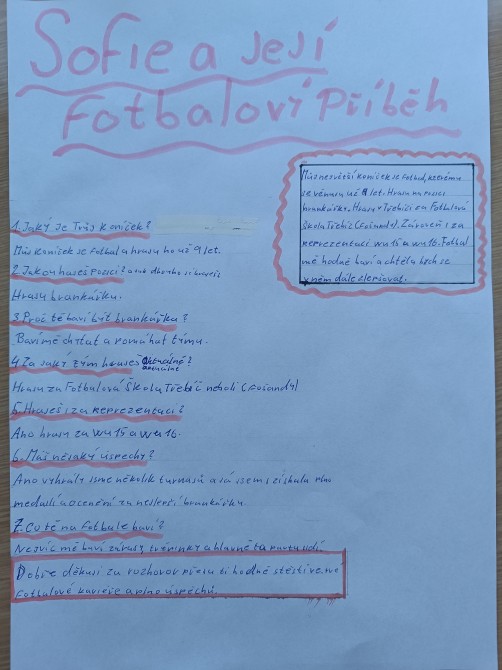 Sofie a její
Fotbaloví Příběh
Můj nesvětší koníček je Fotbal, kterému
se věnuju už 9 let. Hraju na posici
brankářky. Hraju v Třebíči za Fotbalová
Škola Třebíč (Fočandy). Zároveň i za
reprezentaci wu 15 a wu 16. Fotbal
mě hodně baví a chtěla bych se
v něm dále zlepšovat.
1. Jaký je Tvůj Koníček?
Můj Koníček je Fotbal a hraju ho už 9 let.
2. Jakou haseš Posici?
Hraju brankářku.
3. Proč tě baví být brankářka?
Baví mě chytat a pomáhat týmu.
4. Za jaký tým hraješ aktuálně?
Hraju za Fotbalová Škola Třebíč neboli (Fočandy)
5. Hraješ i za Reprezentaci?
Ano hraju za wu 15 a wu 16.
6. Máš nějaký úspěchy?
Ano vyhrály jsme několik turnajů a já jsem získala
medailí a ocenění za nejlepší brankářku.
7. Co tě na Fotbale baví?
Nejvíc mě baví zápasy, tréninky a hlavně ta parta lidí.
Dobře děkuji za rozhovor přeju ti hodně štěstí ve své
Fotbalové kariéře a plno úspěchů.